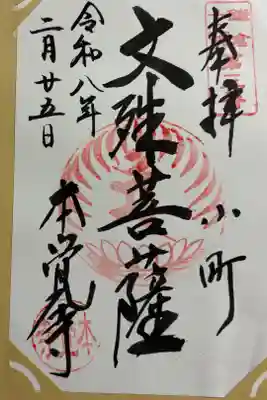 奉拝 小町
文殊菩薩
本覚寺
令和八年
二月廿五日